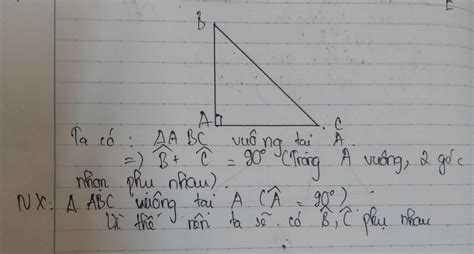 E
B
A
C
Ta có : ΔABC vuông tại A.
=) B̂ + Ĉ = 90° (Trong Δ vuông, 2 góc
nhọn phụ nhau).
NX: Δ ABC vuông tại A (Â = 90°)
Vì thế nên ta sẽ có B̂, Ĉ phụ nhau